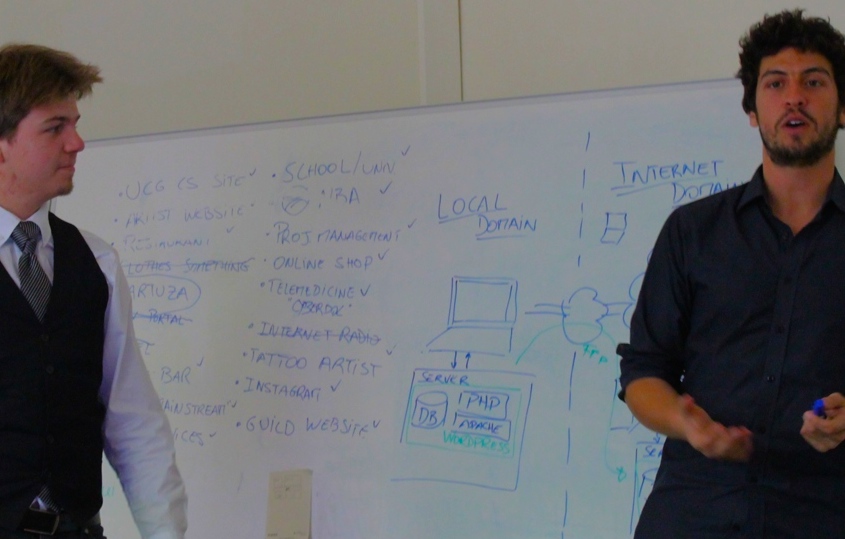 • UCG CS SITE ✓
• ARTIST WEBSITE
• RESTAURANT ✓
CLOTHES SOMETHING
ARTUZA
PORTAL
BAR ✓
MAINSTREAM ✓
• SCHOOL/UNIV ✓
• IRA ✓
• PROJ MANAGEMENT ✓
• ONLINE SHOP ✓
• TELEMEDICINE ✓
"CYBERDOC"
• INTERNET RADIO
• TATTOO ARTIST ✓
• INSTAGRAM ✓
• GUILD WEBSITE ✓
LOCAL
DOMAIN
SERVER
DB
PHP
APACHE
WORDPRESS
INTERNET
DOMAIN
FTP